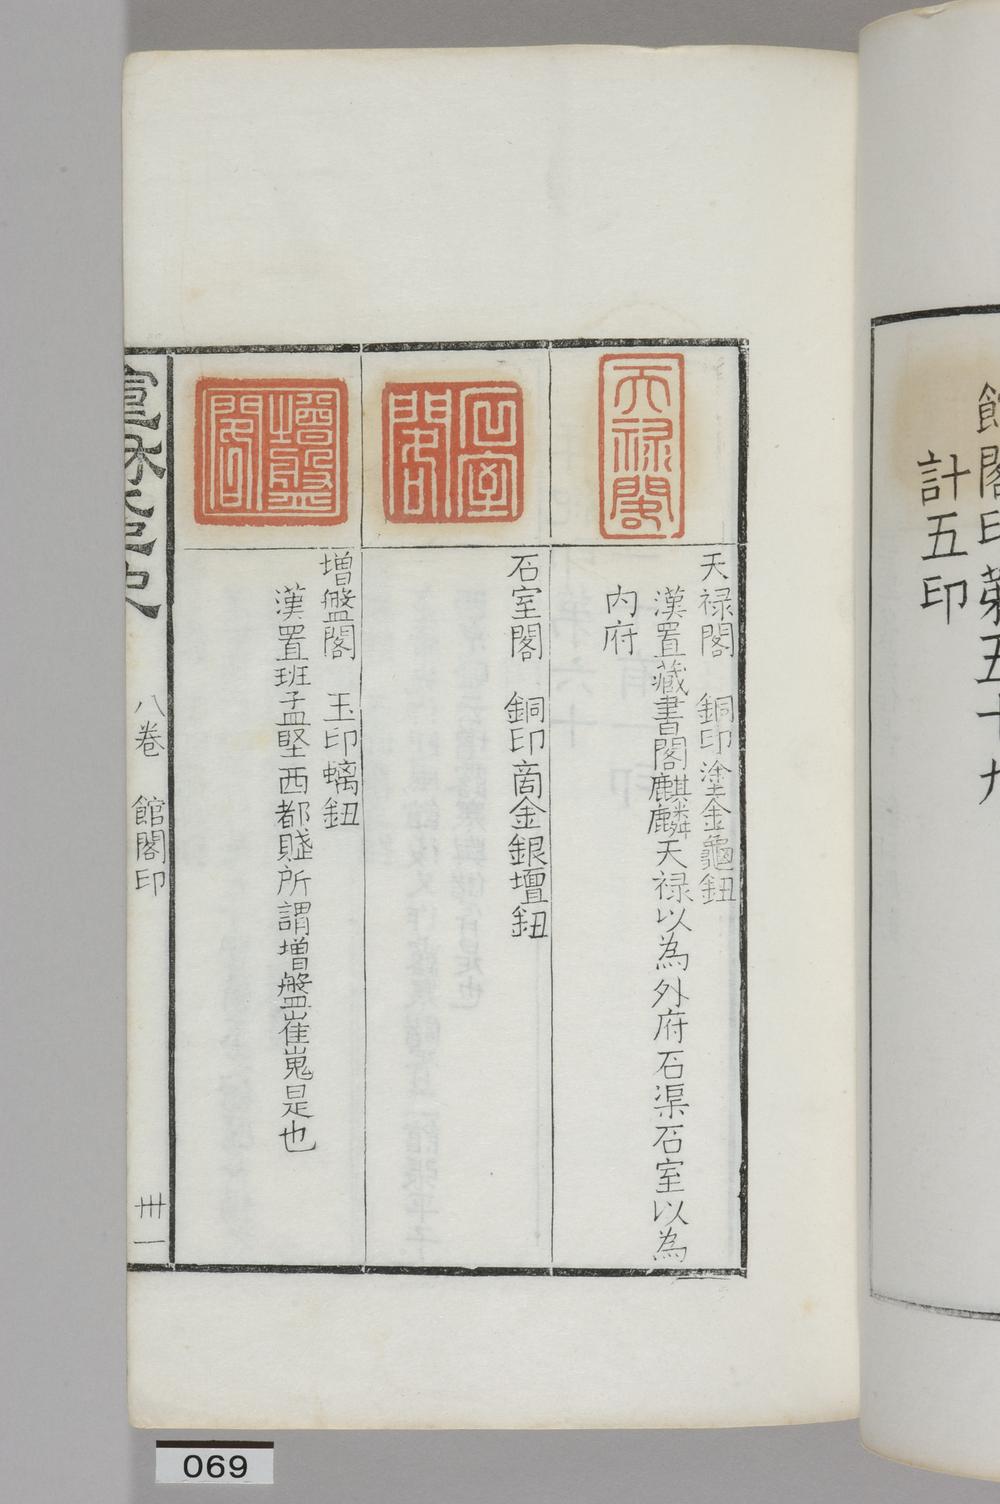 館閣印第五十九
計五印
天禄閣
石室閣
增盤閣
天禄閣　銅印塗金龜鈕
漢置藏書閣麒麟天禄以為外府石渠石室以為
内府
石室閣　銅印啇金銀壇鈕
增盤閣　玉印螭鈕
漢置班孟堅西都賦所謂增盤崔嵬是也
八卷　館閣印　卅一
069